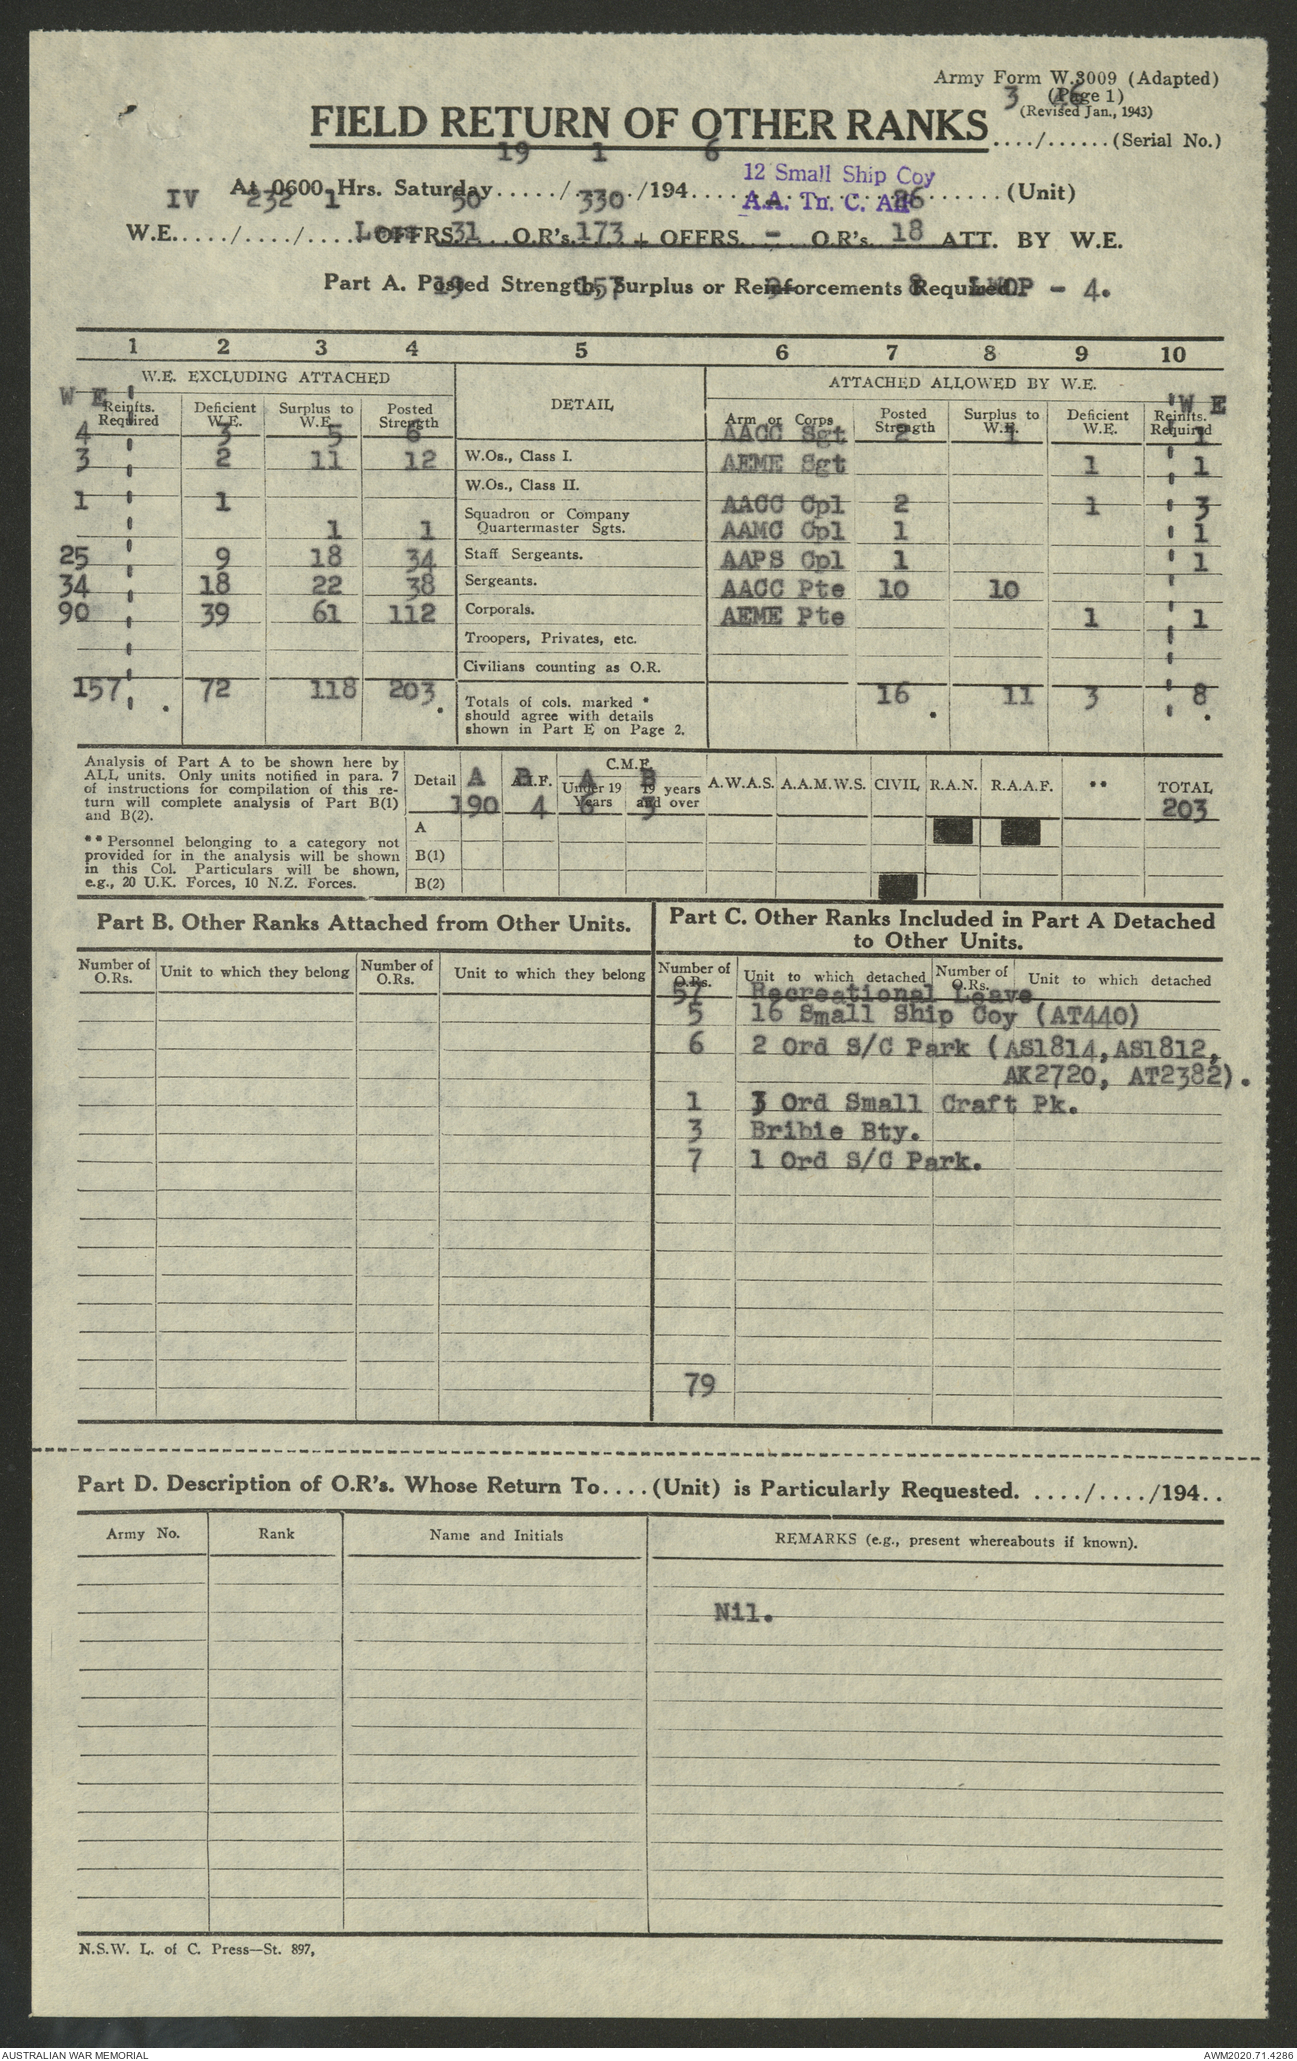 Army Form W.3009 (Adapted)
(Page 1)
3 26
(Revised Jan., 1943)
FIELD RETURN OF OTHER RANKS ..../......(Serial No.)
19 1 6
12 Small Ship Coy
At 0600 Hrs. Saturday...../...../194.... (Unit)
A.A. Tn. C. AIF
IV 232 1 50 330 26
W.E...../..../.... OFFRS. O.R's. + OFFRS. O.R's. ATT. BY W.E.
Less 31 173 - 18
Part A. Posted Strength, Surplus or Reinforcements Required.
19 157 8 LWOP - 4.
1 2 3 4 5 6 7 8 9 10
W.E. EXCLUDING ATTACHED DETAIL ATTACHED ALLOWED BY W.E.
W E W E
Reinfts. Required Deficient W.E. Surplus to W.E. Posted Strength Arm or Corps Posted Strength Surplus to W.E. Deficient W.E. Reinfts. Required
4 3 5 6 AACC Sgt 2 1 1
W.Os., Class I.
3 2 11 12 AEME Sgt 1 1
W.Os., Class II.
1 1 AACC Cpl 2 1 3
Squadron or Company
Quartermaster Sgts.
1 1 AAMC Cpl 1 1
25 9 18 34 Staff Sergeants. AAPS Cpl 1 1
34 18 22 38 Sergeants. AACC Pte 10 10
90 39 61 112 Corporals. AEME Pte 1 1
Troopers, Privates, etc.
Civilians counting as O.R.
157 72 118 203 16 11 3 8
Totals of cols. marked *
should agree with details
shown in Part E on Page 2.
Analysis of Part A to be shown here by
ALL units. Only units notified in para. 7
of instructions for compilation of this re-
turn will complete analysis of Part B(1)
and B(2).
** Personnel belonging to a category not
provided for in the analysis will be shown
in this Col. Particulars will be shown,
e.g., 20 U.K. Forces, 10 N.Z. Forces.
C.M.F.
Detail A.I.F. Under 19 Years 19 years and over A.W.A.S. A.A.M.W.S. CIVIL R.A.N. R.A.A.F. ** TOTAL
A B A B
190 4 6 3 203
A
B(1)
B(2)
Part B. Other Ranks Attached from Other Units.
Part C. Other Ranks Included in Part A Detached
to Other Units.
Number of O.Rs. Unit to which they belong Number of O.Rs. Unit to which they belong
Number of O.Rs. Unit to which detached Number of O.Rs. Unit to which detached
57 Recreational Leave
5 16 Small Ship Coy (AT440)
6 2 Ord S/C Park (AS1814, AS1812,
AK2720, AT2382).
1 3 Ord Small Craft Pk.
3 Bribie Bty.
7 1 Ord S/C Park.
79
Part D. Description of O.R's. Whose Return To....(Unit) is Particularly Requested. ..../..../194..
Army No. Rank Name and Initials REMARKS (e.g., present whereabouts if known).
Nil.
N.S.W. L. of C. Press—St. 897,
AUSTRALIAN WAR MEMORIAL AWM2020.71.4286